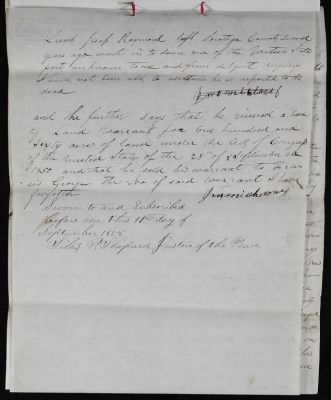 Lieut Josep Raymond left Saratoga County Several
years ago went in to some one of the Western States
part unknown to me and from diligent enquiry
I have not been able to ascertain he is reported to be
dead
and he further says that he received a Boun
ty Land warrant for one hundred and
Sixty acres of land under the Act of Congress
of the United States of the 28th of September AD
1850 and that he sold his warrant to
George the No of said warrant I have
forgotten
Sworn to and Subscribed
before me this 11th day of
September 1858
Silas P. Shepard Justice of the Peace